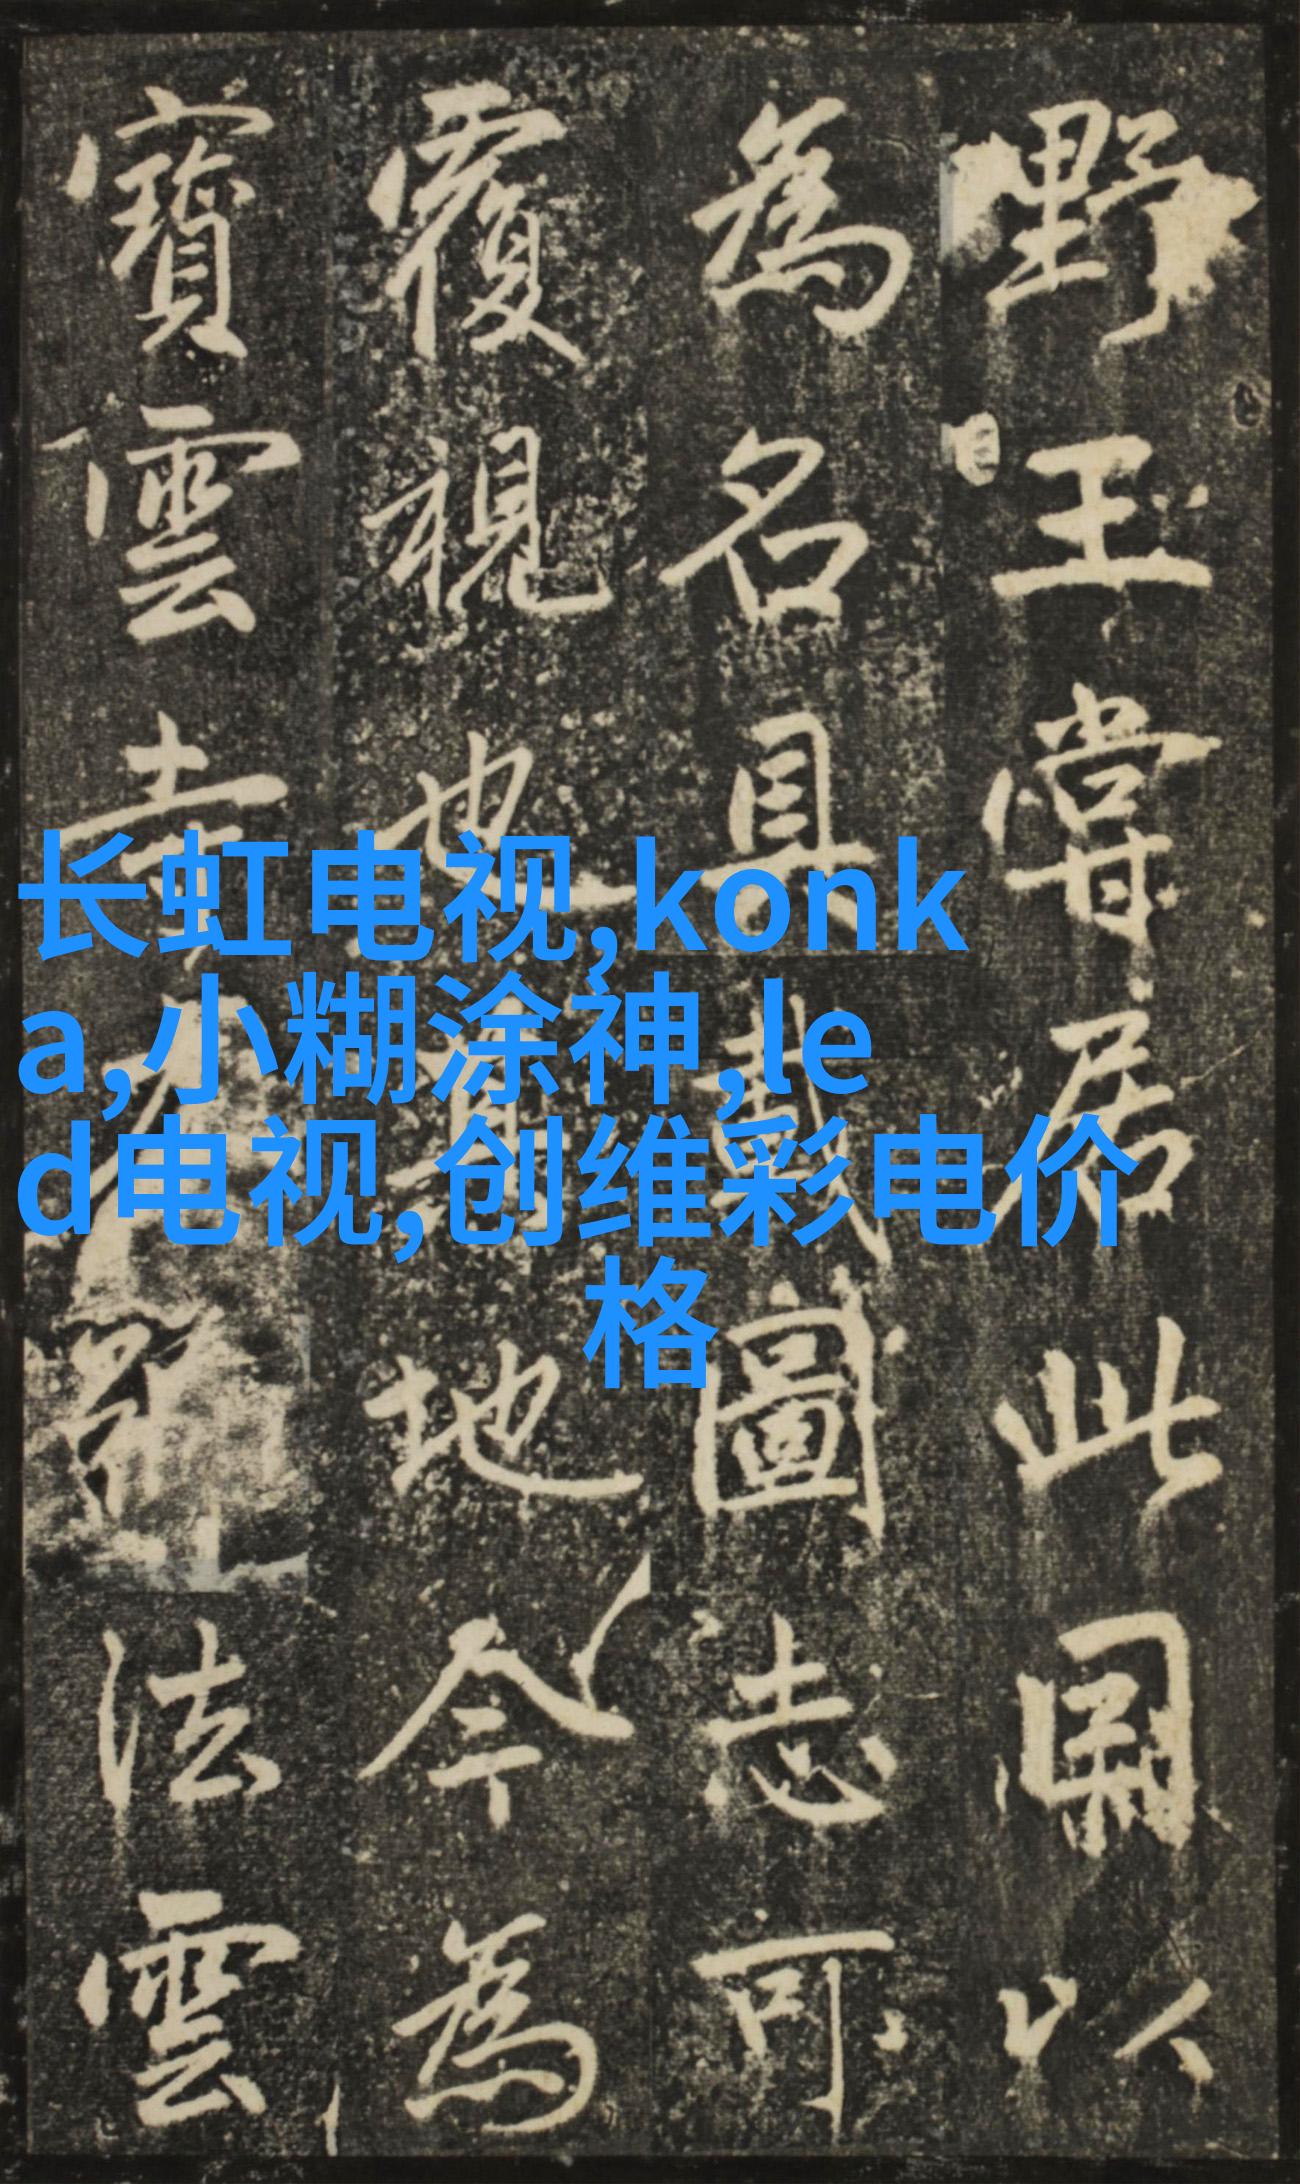 长虹电视,konk
a,小糊涂神,le
d电视,创维彩电价
格
野王嘗居此以
為名具載圖志可
覆視也地今為
寶雲寺法雲